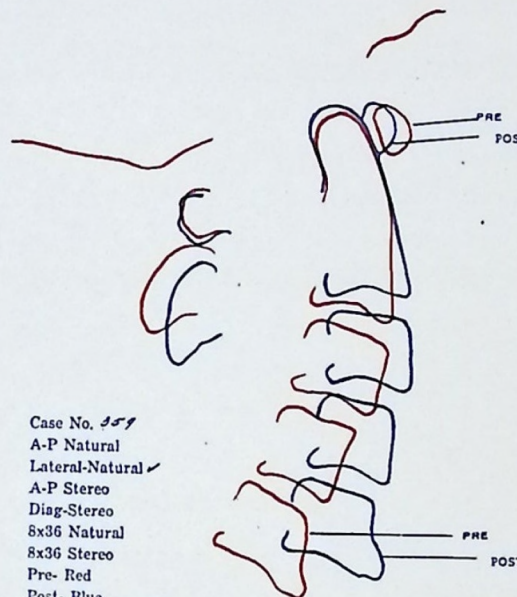 PRE
POST
Case No. 359
A-P Natural
Lateral-Natural ✓
A-P Stereo
Diag-Stereo
8x36 Natural
8x36 Stereo
PRE
Pre- Red
POST
Post- Blue